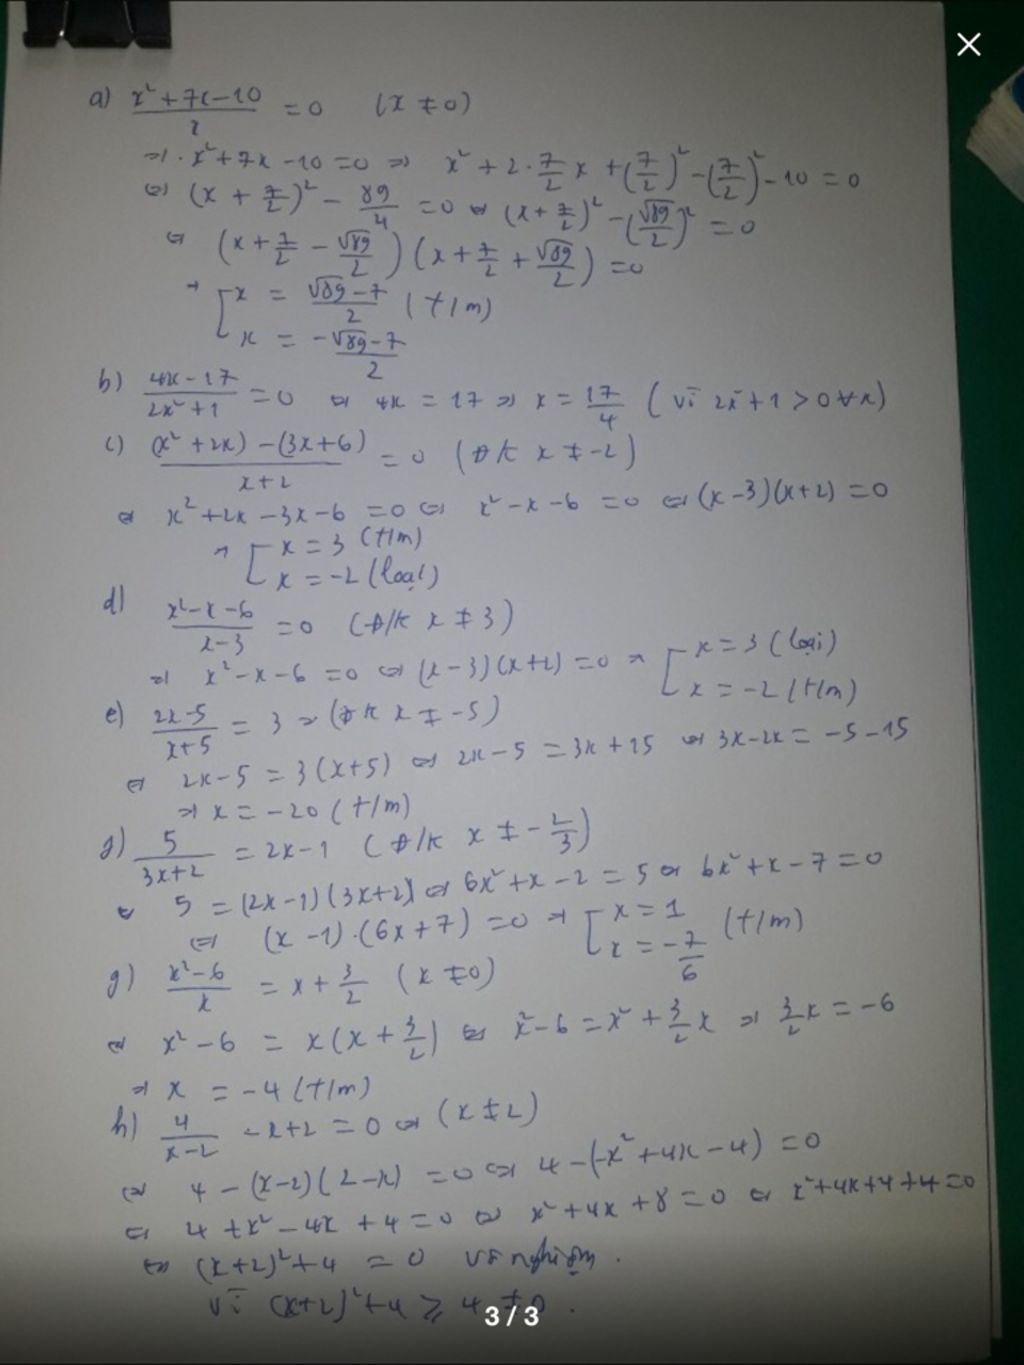 a) (x² + 7x - 10)/x = 0 (x ≠ 0)
⇒ x² + 7x - 10 = 0 ⇒ x² + 2·7/2 x + (7/2)² - (7/2)² - 10 = 0
⇔ (x + 7/2)² - 89/4 = 0 ⇔ (x + 7/2)² - (√89/2)² = 0
⇔ (x + 7/2 - √89/2)(x + 7/2 + √89/2) = 0
⇒ [ x = (√89 - 7)/2 (t/m)
x = (-√89 - 7)/2
b) (4x - 17)/(2x² + 1) = 0 ⇔ 4x = 17 ⇒ x = 17/4 (vì 2x² + 1 > 0 ∀x)
c) ((x² + 2x) - (3x + 6))/(x + 2) = 0 (Đ/K x ≠ -2)
⇔ x² + 2x - 3x - 6 = 0 ⇔ x² - x - 6 = 0 ⇔ (x - 3)(x + 2) = 0
⇒ [ x = 3 (t/m)
x = -2 (loại)
d) (x² - x - 6)/(x - 3) = 0 (Đ/K x ≠ 3)
⇒ x² - x - 6 = 0 ⇔ (x - 3)(x + 2) = 0 ⇒ [ x = 3 (loại)
x = -2 (t/m)
e) (2x - 5)/(x + 5) = 3 ⇒ (Đ K x ≠ -5)
⇔ 2x - 5 = 3(x + 5) ⇔ 2x - 5 = 3x + 15 ⇔ 3x - 2x = -5 - 15
⇒ x = -20 (t/m)
f) 5/(3x + 2) = 2x - 1 (Đ/K x ≠ -2/3)
⇔ 5 = (2x - 1)(3x + 2) ⇔ 6x² + x - 2 = 5 ⇔ 6x² + x - 7 = 0
⇔ (x - 1).(6x + 7) = 0 ⇒ [ x = 1
x = -7/6 (t/m)
g) (x² - 6)/x = x + 3/2 (x ≠ 0)
⇔ x² - 6 = x(x + 3/2) ⇔ x² - 6 = x² + 3/2 x ⇒ 3/2 x = -6
⇒ x = -4 (t/m)
h) 4/(x - 2) - x + 2 = 0 ⇔ (x ≠ 2)
⇔ 4 - (x - 2)(2 - x) = 0 ⇔ 4 - (-x² + 4x - 4) = 0
⇔ 4 + x² - 4x + 4 = 0 ⇔ x² + 4x + 8 = 0 ⇔ x² + 4x + 4 + 4 = 0
⇔ (x + 2)² + 4 = 0 vô nghiệm.
vì (x + 2)² + 4 ≥ 4 ≠ 0.
3 / 3